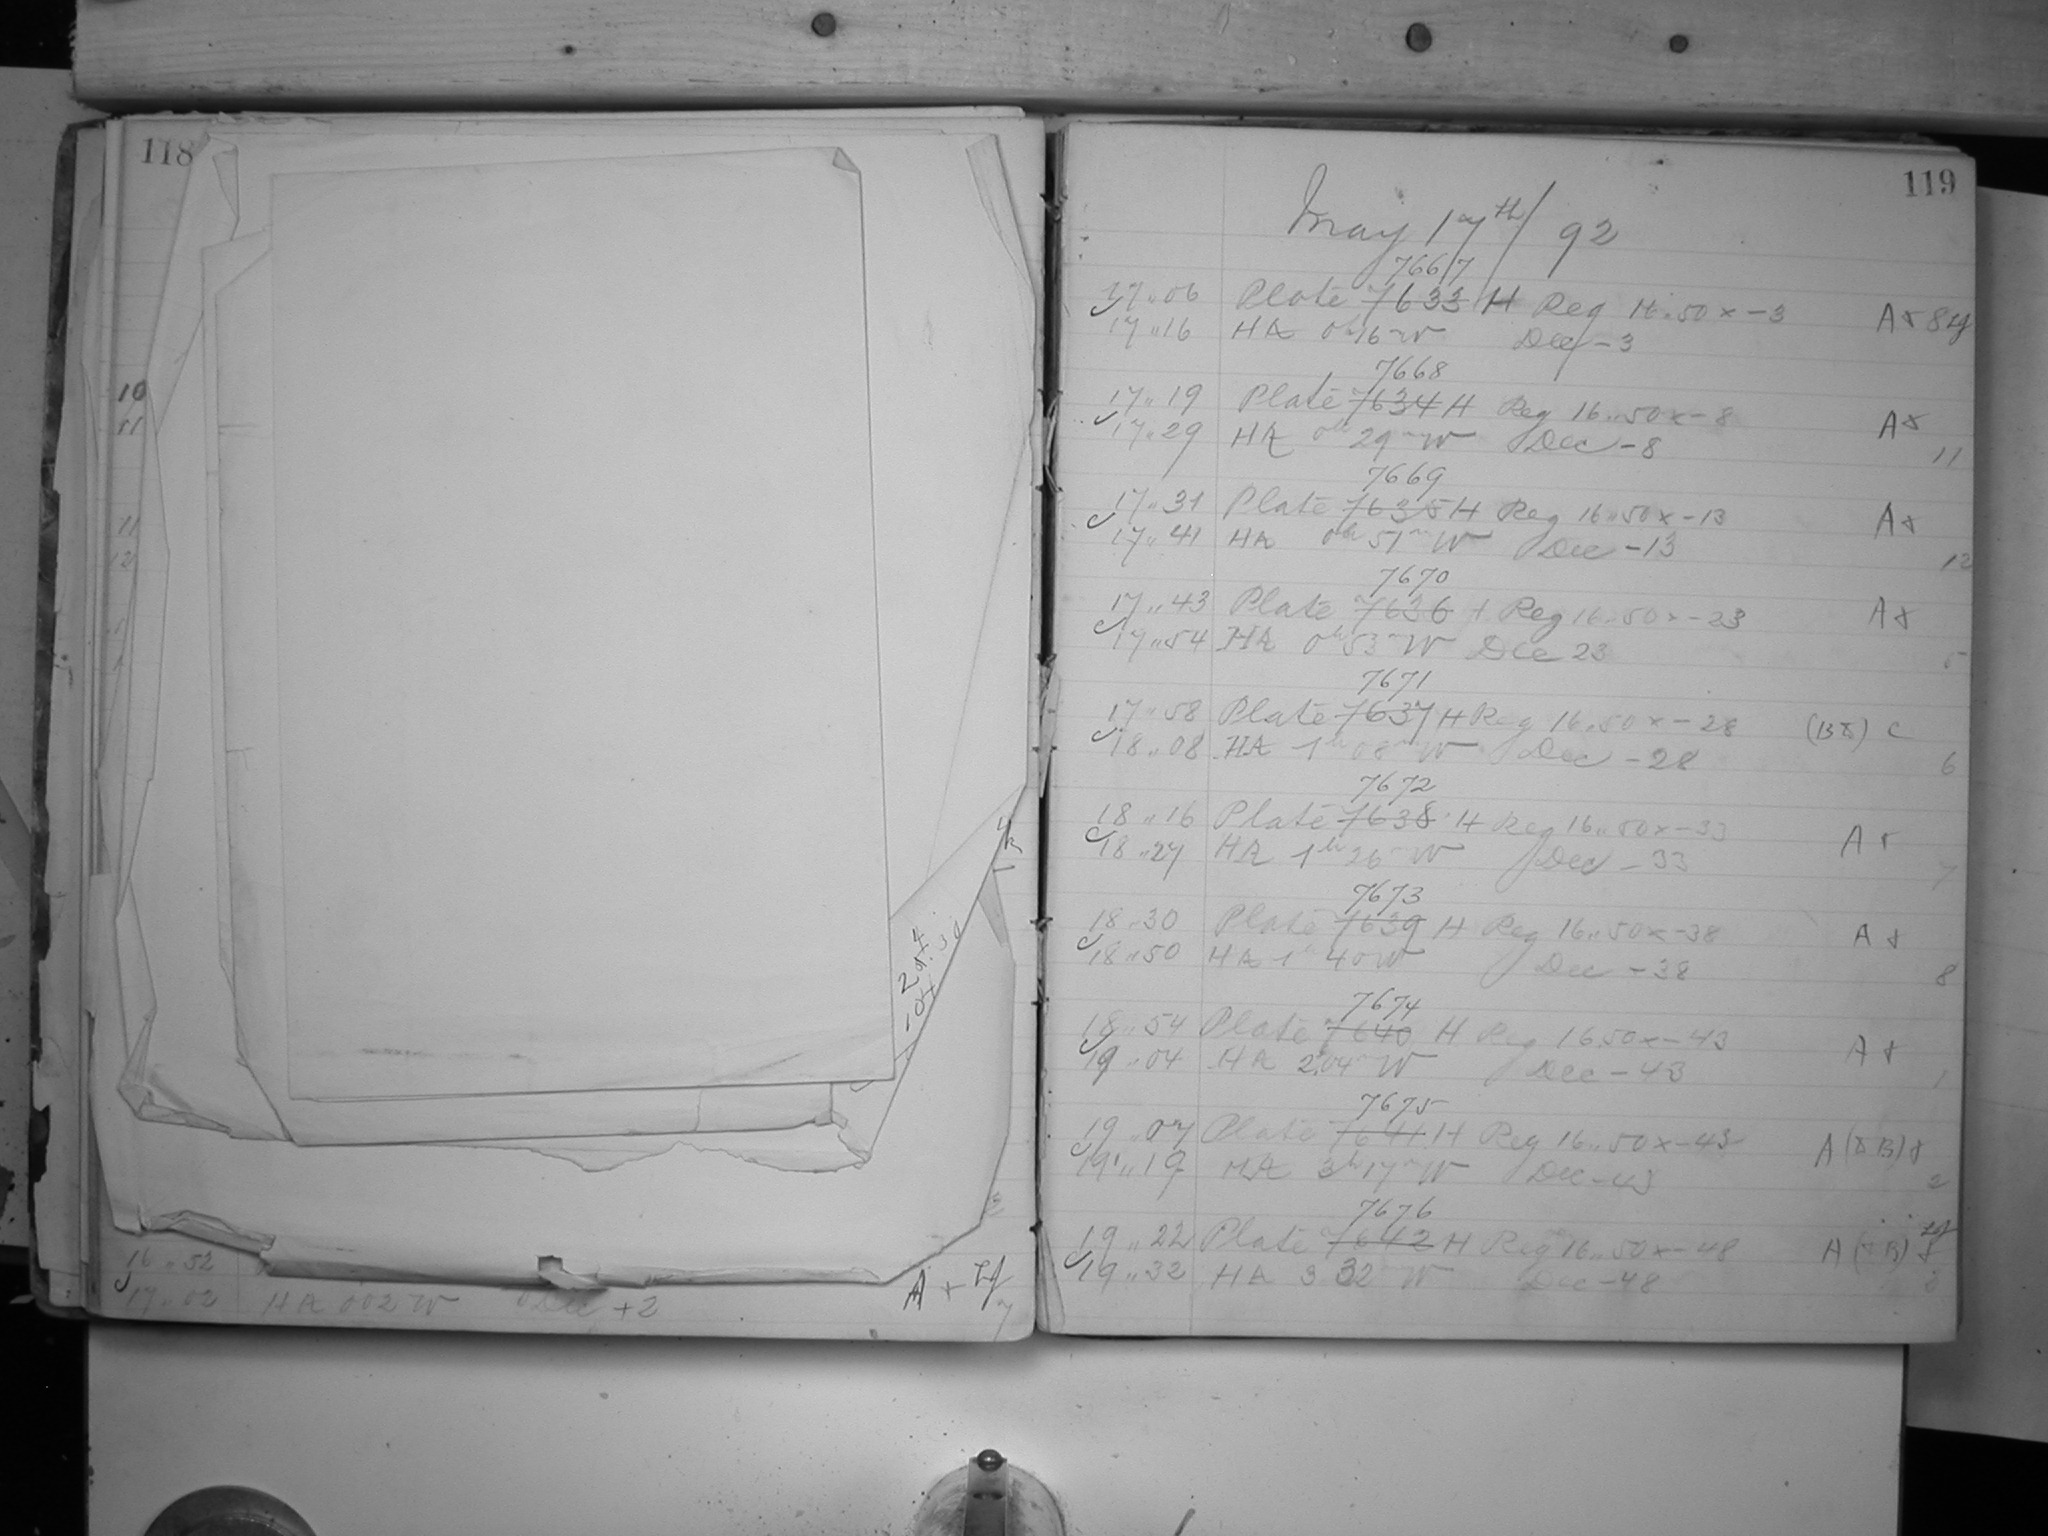 118
10
11
11
12
16 " 52
17 " 02 HA 0 02 W Dec +2
A + 7
119
May 17th/92
7667
17 " 06 Plate 7633 H Reg 16 " 50 x -3
17 " 16 HA 0h 16m W Dec -3
7668
17 " 19 Plate 7634 H Reg 16 " 50 x -8
17 " 29 HA 0h 29m W Dec -8
11
7669
17 " 31 Plate 7635 H Reg 16 " 50 x -13
17 " 41 HA 0h 51m W Dec -13
12
7670
17 " 43 Plate 7636 H Reg 16 " 50 x -23
17 " 54 HA 0h 53m W Dec 23
5
7671
17 " 58 Plate 7637 H Reg 16 " 50 x -28 C
18 " 08 HA 1h 08m W Dec -28
6
7672
18 " 16 Plate 7638 H Reg 16 " 50 x -33
18 " 27 HA 1h 26m W Dec -33
7
7673
18 " 30 Plate 7639 H Reg 16 " 50 x -38
18 " 50 HA 1h 40m W Dec -38
8
7674
18 " 54 Plate 7640 H Reg 16 50 x -43
19 " 04 HA 2h 04m W Dec -43
1
7675
19 " 07 Plate 7641 H Reg 16 " 50 x -43
19 " 19 HA 3h 17m W Dec -43
2
7676
19 " 22 Plate 7642 H Reg 16 " 50 x -48
19 " 32 HA 3 32 W Dec -48